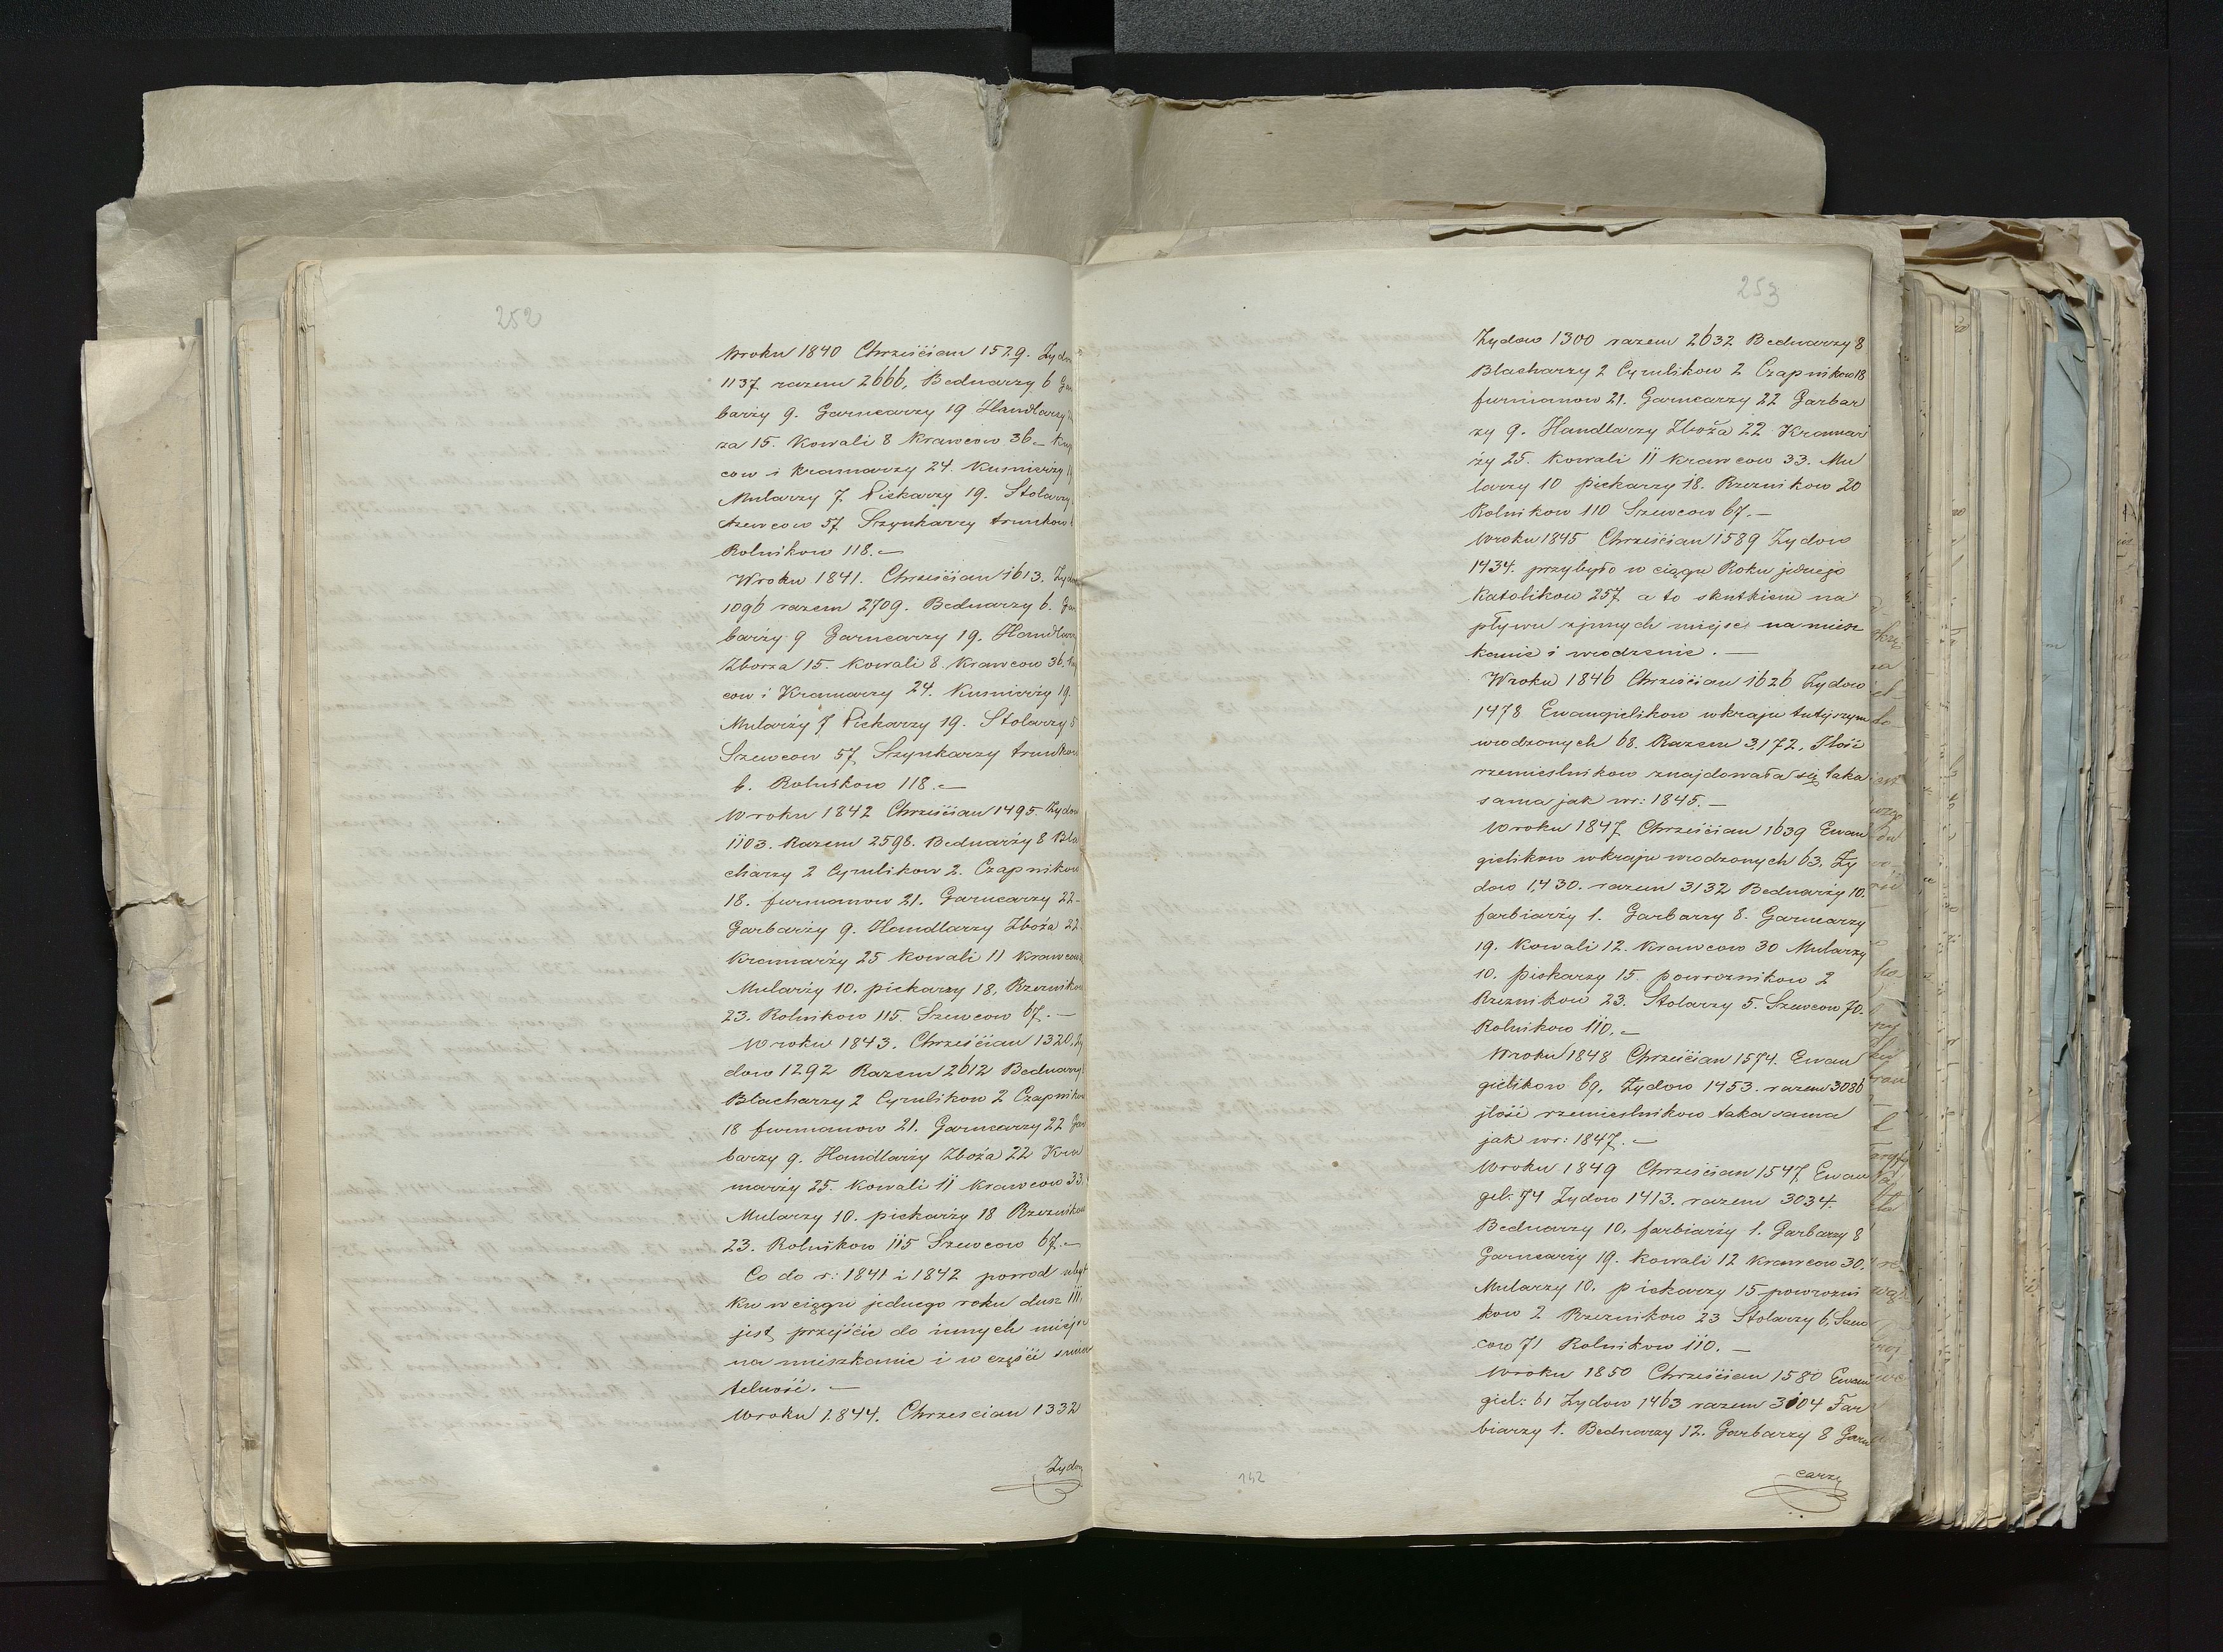 252
Wroku 1840 Chrześcian 1529. Zydow
1137 razem 2666, Bednarzy 6 Gar
barży 9. Garncarzy 19 Handlarzy
za 15. Kowali 8 Krawcow 36 – Kup
cow i Kramarzy 24. Kusnierzy
Mularzy 7 Piekarzy 19. Stolarzy
Szewcow 57 Szynkarzy trunkow
Rolnikow 118. –
Wroku 1841. Chrześcian 1613. Zydow
1096 razem 2709. Bednarzy 6. Gar
barży 9 Garncarzy 19. Handlarzy
Zborza 15. Kowali 8. Krawcow 36. Kup
cow i Kramarzy 24. Kusnierży 19.
Mularży 7 Piekarzy 19. Stolarzy 5
Szewcow 57 Szynkarzy trunkow
6. Rolnikow 118. –
Wroku 1842 Chrześcian 1495 Zydow
1103. Razem 2598. Bednarży 8 Bla
charzy 2 Cyrulikow 2. Czapnikow
18. furmanow 21. Garncarzy 22.
Garbarży 9. Handlarzy Zboża 22
Kramarży 25 Kowali 11 Krawcow
Mularży 10. piekarzy 18, Rzeznikow
23. Rolnikow 115. Szewcow 67. –
Wroku 1843. Chrześcian 1320. Zy
dow 1292 Razem 2612 Bednarzy
Blacharzy 2 Cyrulikow 2 Czapnikow
18 furmanow 21. Garncarzy 22 Gar
barzy 9. Handlarży Zboża 22 Kra
marży 25. Kowali 11 Krawcow 33.
Mularzy 10. piekarży 18 Rzeznikow
23. Rolnikow 115 Szewcow 67. –
Co do r: 1841 i 1842 powod ubyt
ku w ciągu jednego roku dusz 111,
jest przejście do innych miejsc
na mieszkanie i w częsći smier
telność. –
Wroku 1844. Chrzescian 1332
Zydow
253
Zydow 1300 razem 2632 Bednarzy 8
Blacharzy 2 Cyrulikow 2 Czapnikow 18
furmanow 21. Garncarzy 22 Garbar
zy 9. Handlarzy Zboża 22 Kramar
ży 25. Kowali 11 Krawcow 33. Mu
larzy 10 piekarzy 18. Rzeznikow 20
Rolnikow 110 Szewcow 67. –
Wroku 1845 Chrześcian 1589 Zydow
1434. przybyło w ciągu Roku jednego
Katolikow 257 a to skutkiem na
pływu zjnnych miejsc na miesz
kanie i urodzenie. –
Wroku 1846 Chrześcian 1626 Zydow
1478 Ewangielikow wkraju tutyszym
urodzonych 68. Razem 3,172. Ilość
rzemieslnikow znajdowała się taka
sama jak wr: 1845. –
Wroku 1847 Chrześcian 1639 Ewan
gielikow wkraju urodzonych 63, Zy
dow 1,430. razem 3132 Bednarży 10.
farbiarży 1. Garbarzy 8. Garncarzy
19. Kowali 12. Krawcow 30 Mularzy
10. piekarzy 15 powroznikow 2
Rzeznikow 23. Stolarzy 5. Szewcow 70.
Rolnikow 110. –
Wroku 1848 Chrześcian 1574. Ewan
gielikow 69, Zydow 1453. razem 3086
jlość rzemieslnikow taka sama
jak wr: 1847. –
Wroku 1849 Chrześcian 1547 Ewan
giel: 74 Zydow 1413. razem 3034.
Bednarzy 10, farbiarży 1. Garbarzy 8
Garncarży 19. Kowali 12 Krawcow 30.
Mularzy 10. piekarzy 15 powrozni
kow 2 Rzeznikow 23 Stolarzy 6, Szew
cow 71 Rolnikow 110. –
Wroku 1850 Chrześcian 1580 Ewan
giel: 61 Zydow 1463 razem 3104 Far
biarzy 1. Bednarzy 12. Garbarzy 8 Garn
carzy
142